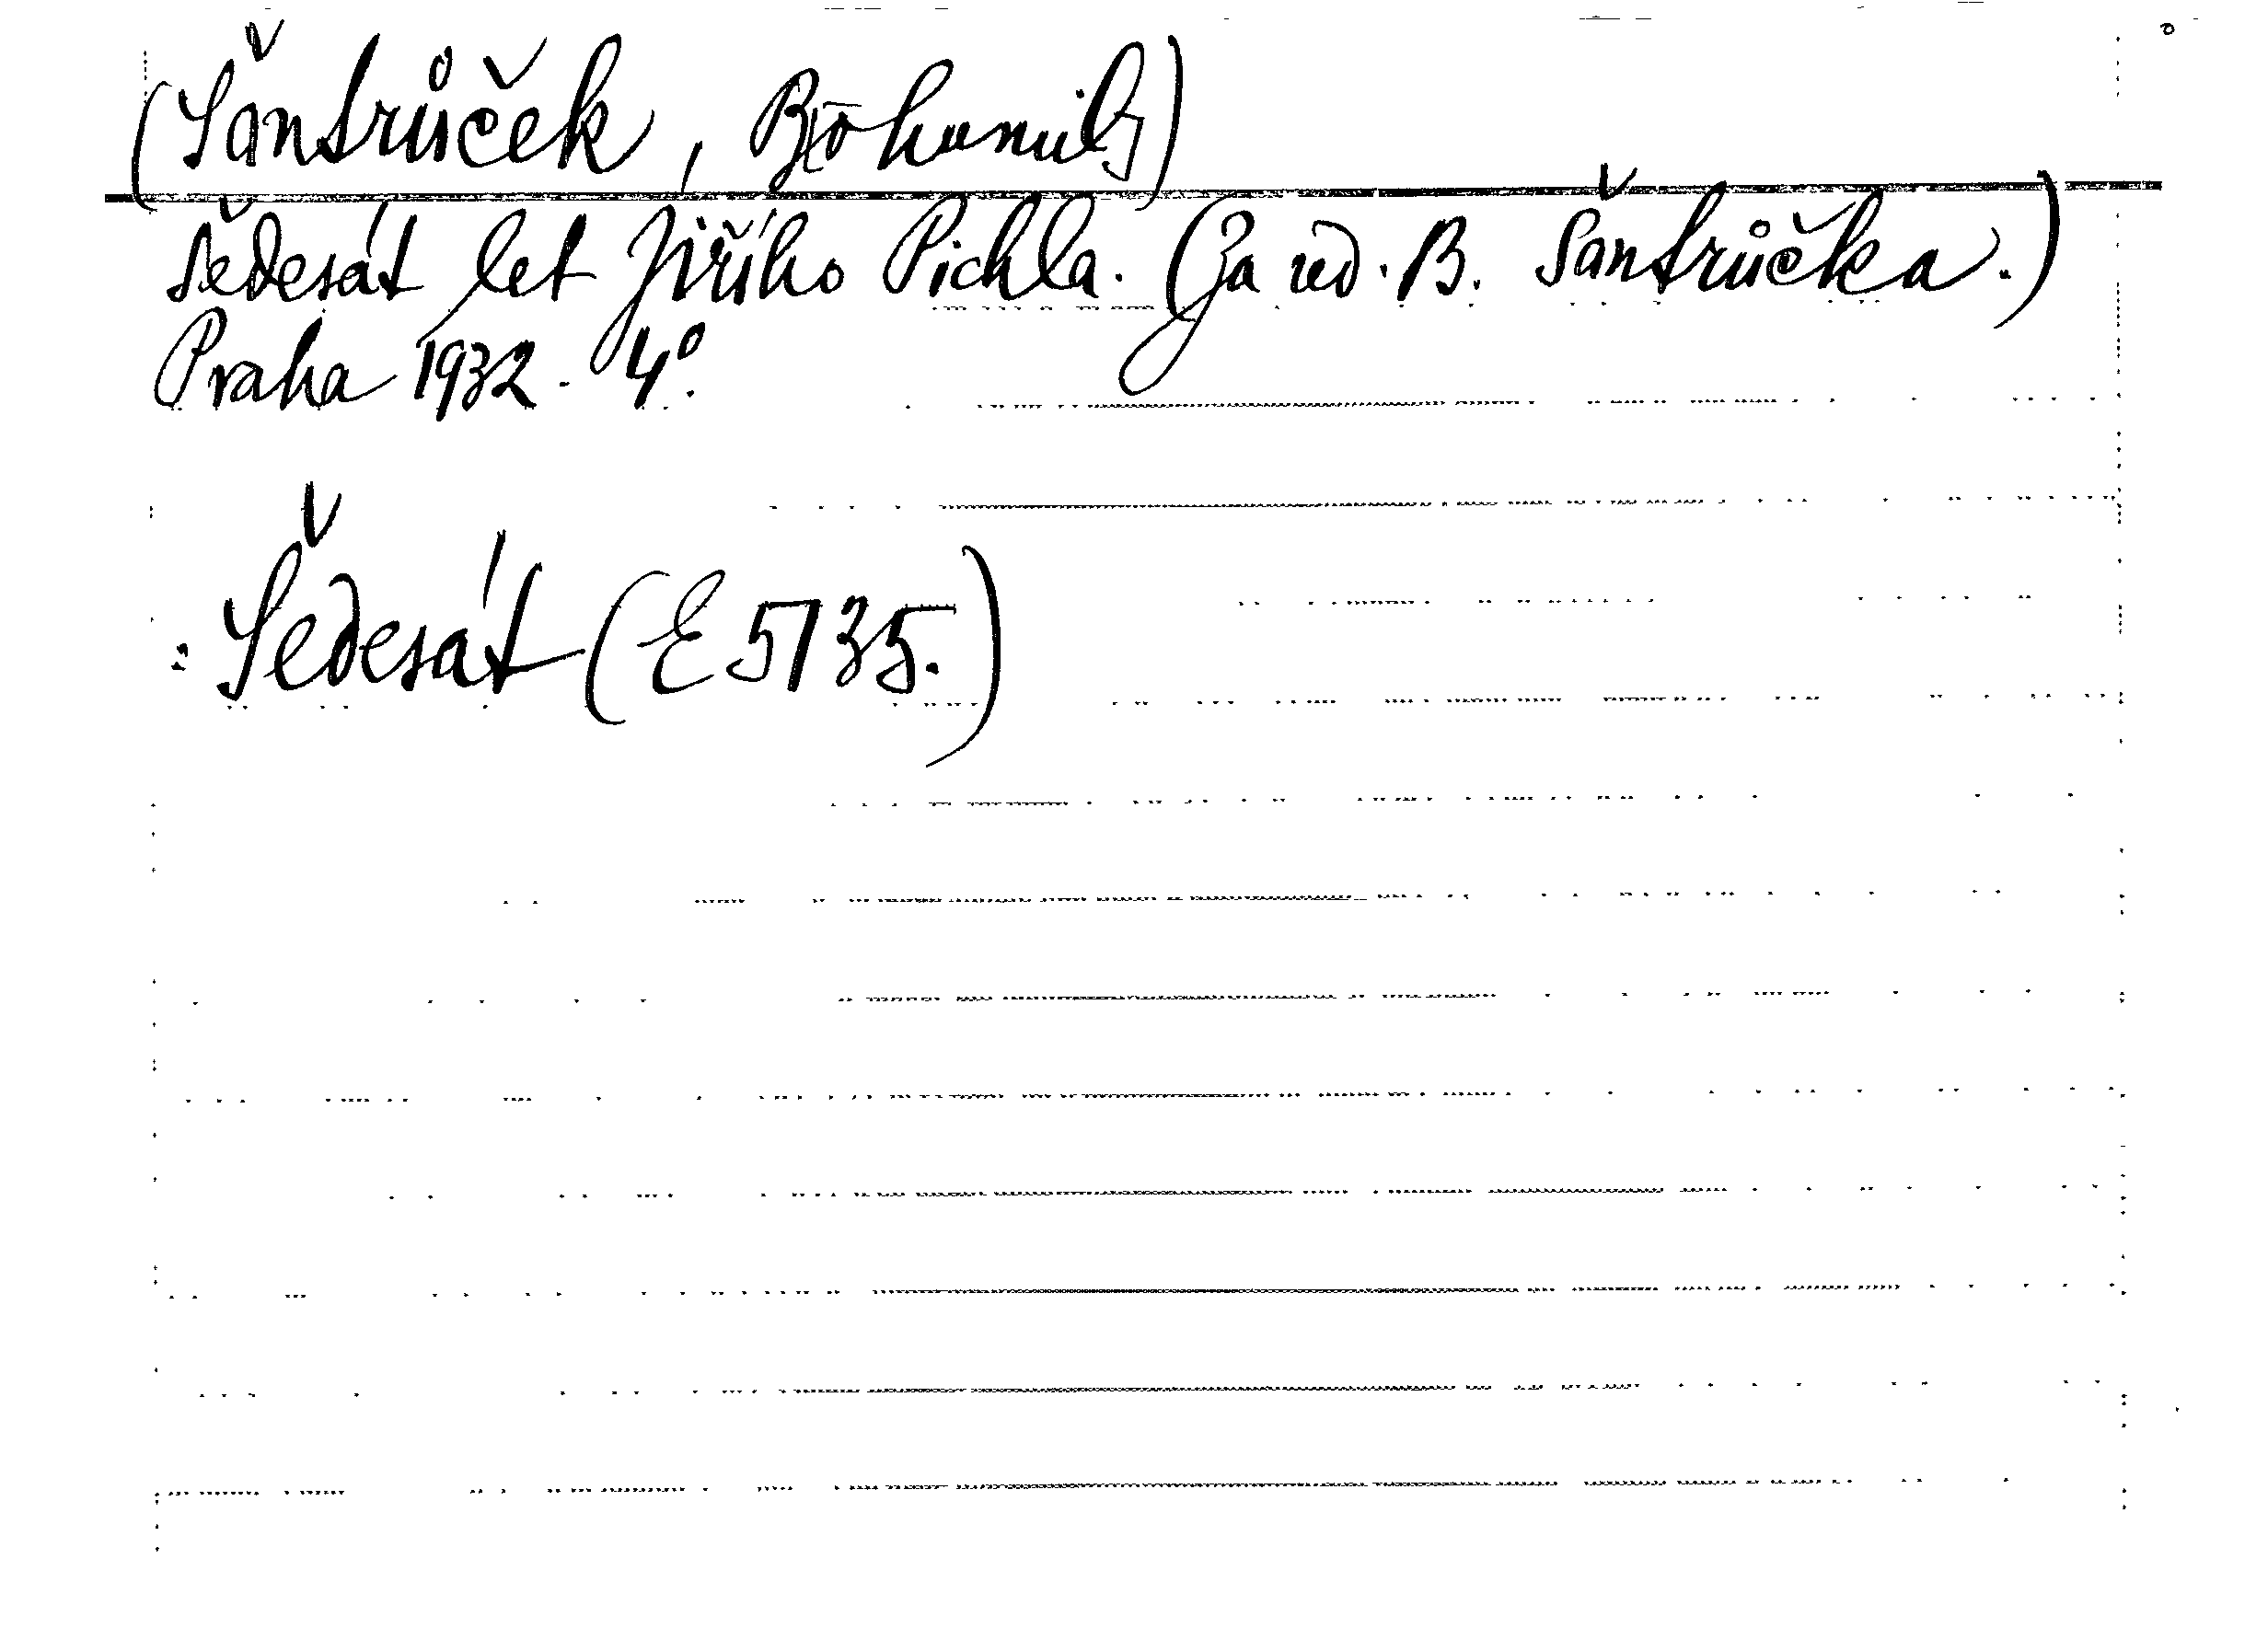 (Šantrůček, B[ohumil])
Šedesát let Jiřího Pichla. (Za red. B. Šantrůčka.)
Praha 1932. 4°.
: Šedesát (E 5135.)